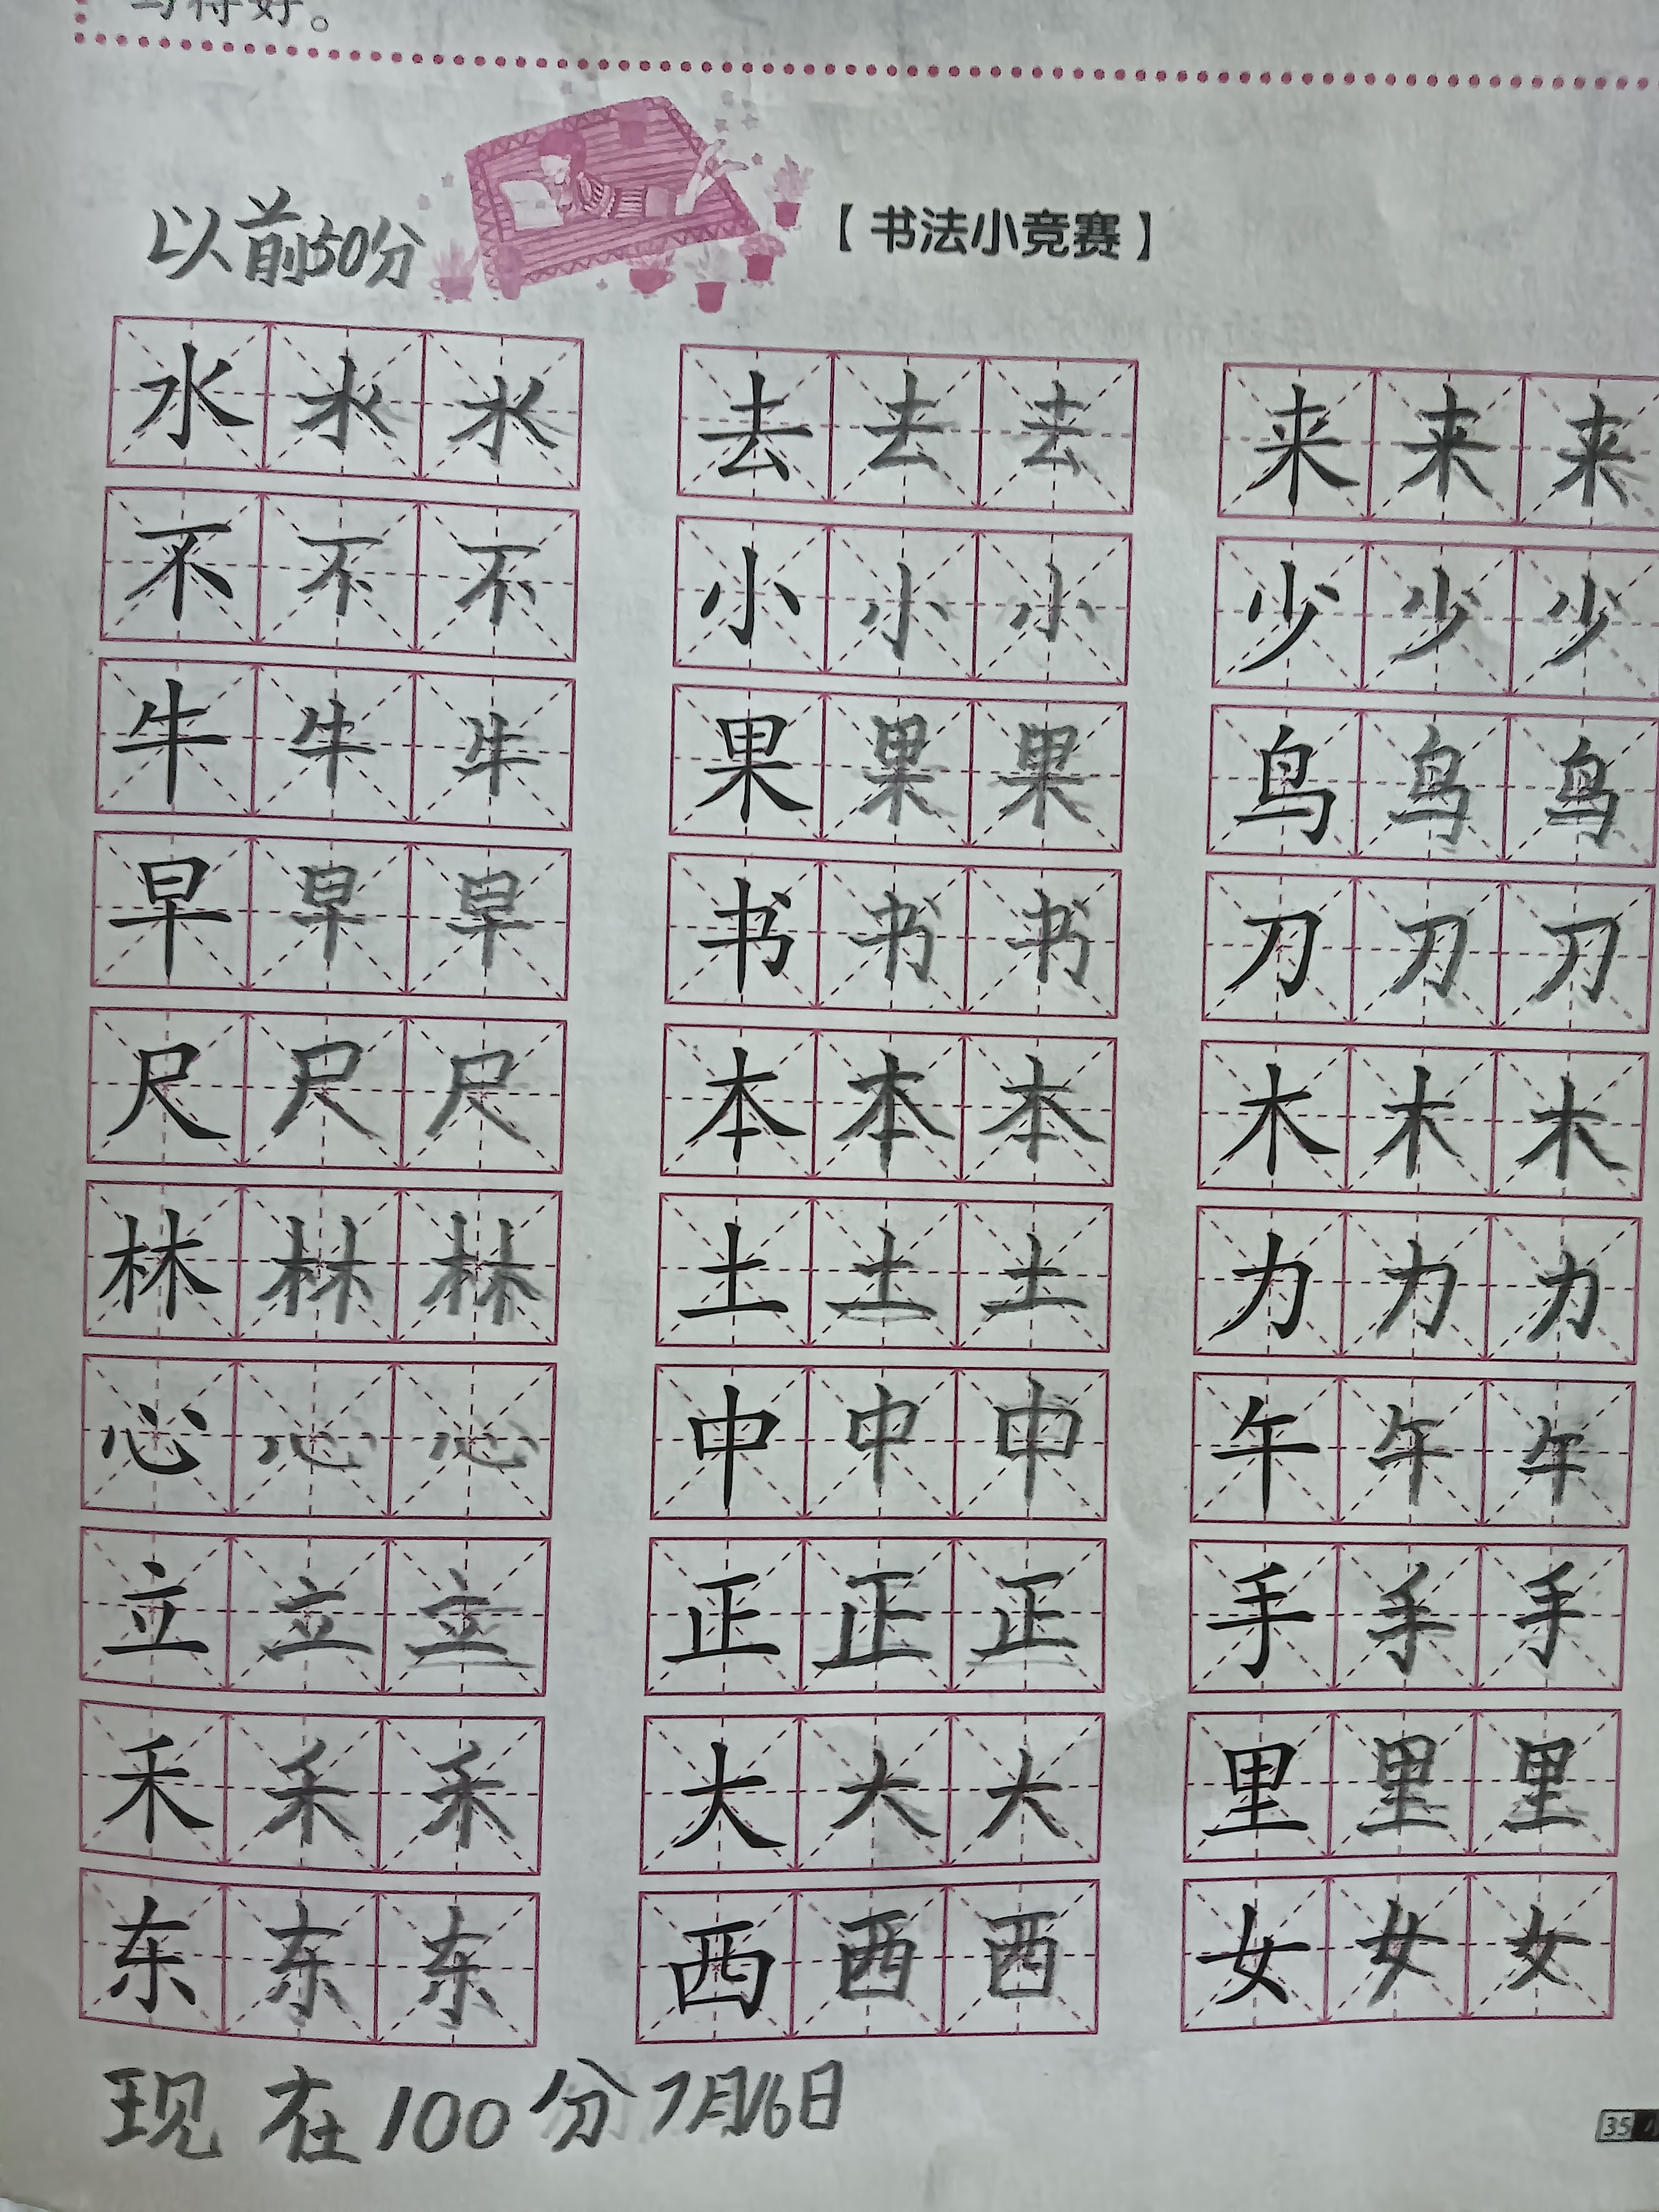 写得好。
以前50分
【书法小竞赛】
水水水 去去去 来来来
不不不 小小小 少少少
牛牛牛 果果果 鸟鸟鸟
早早早 书书书 刀刀刀
尺尺尺 本本本 木木木
林林林 土土土 力力力
心心心 中中中 午午午
立立立 正正正 手手手
禾禾禾 大大大 里里里
东东东 西西西 女女女
现在100分7月16日
35